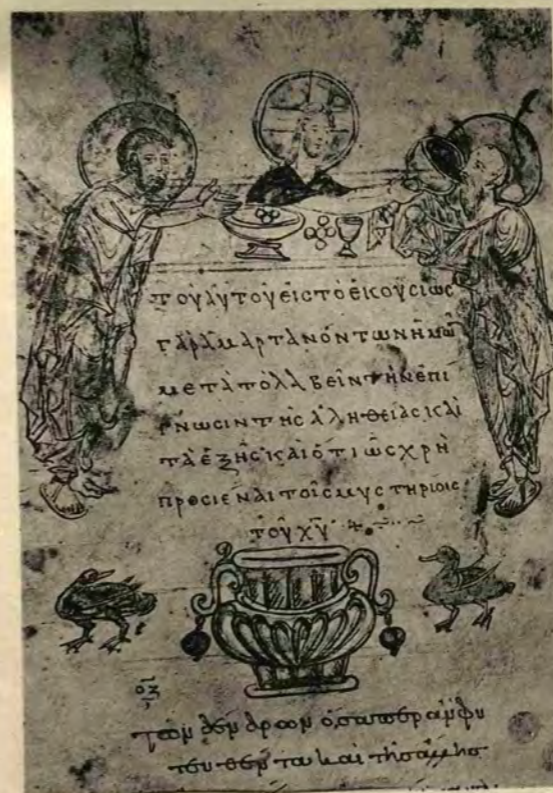 τοῦ αὐτοῦ εἰς τὸ ἑκουσίως
γὰρ ἁμαρτανόντων ἡμῶ̅
μετὰ τὸ λαβεῖν τὴν ἐπί
γνωσιν τῆς ἀληθείας καὶ
τὰ ἑξῆς καὶ ὅτι ὡς χρὴ
προσιέναι τοῖς μυστηρίοις
τοῦ χ̅υ̅
τῶν δένδρων ὅσαπερ ἂν φυ
τευθέντα καὶ τῆς